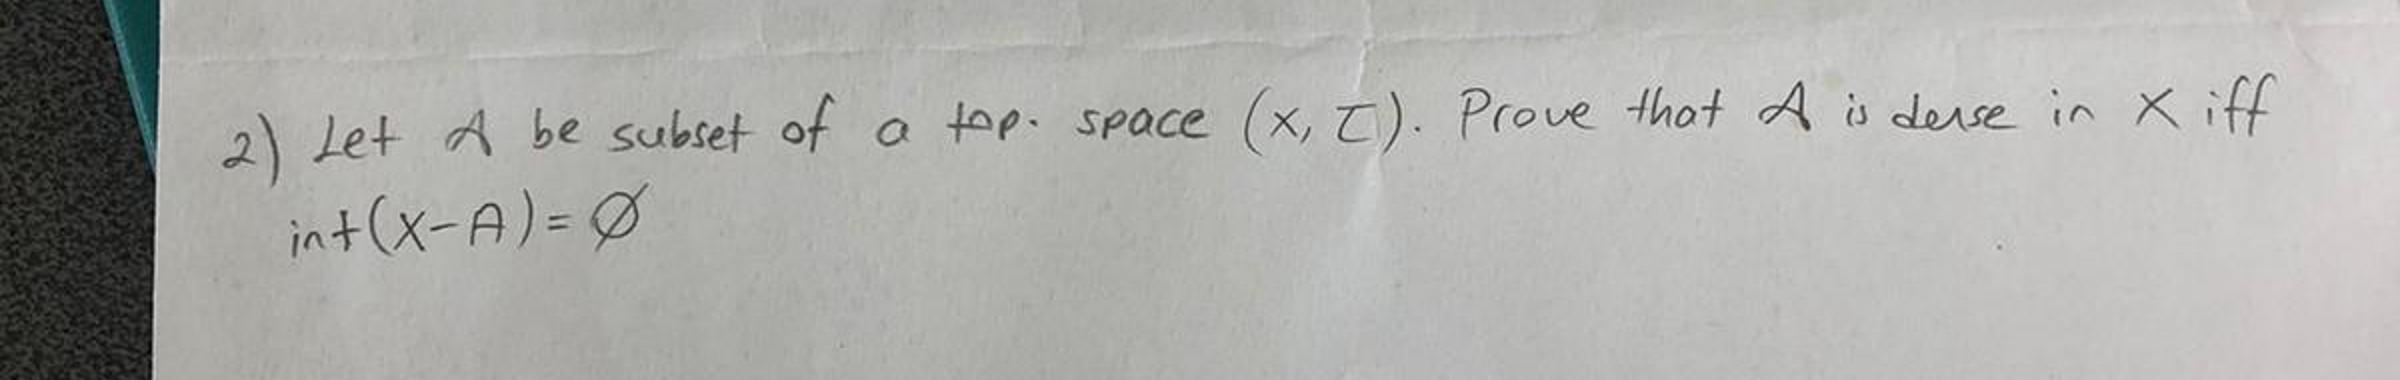 2) Let A be subset of a top. space (X, τ). Prove that A is dense in X iff
int(X-A)=∅